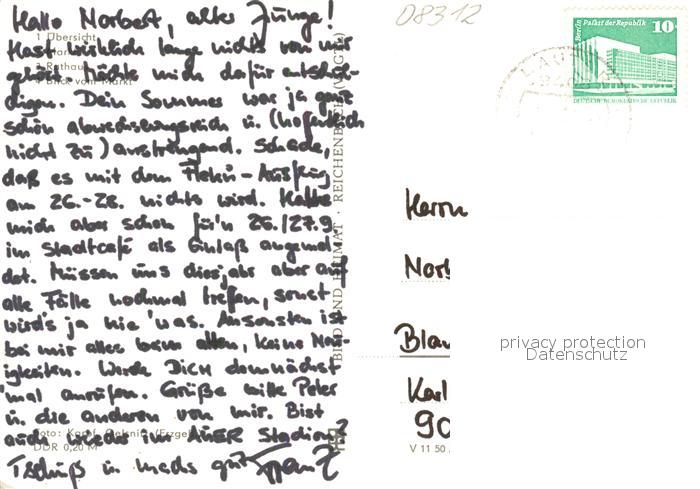 Hallo Norbert, alter Junge!
Hast wirklich lange nichts von mir
gehört. Möchte mich dafür entschul-
digen. Dein Sommer war ja ganz
schön abwechslungsreich u. (hoffentlich
nicht zu) anstrengend. Schade,
daß es mit dem Ausflug
am 26.-28. nichts wird. Hatte
mich aber schon für'n 26./27.9.
im Stadtcafé als Einlaß angemel-
det. Müssen uns dies Jahr aber auf
alle Fälle nochmal treffen, sonst
wird's ja nie 'was. Ansonsten ist
bei mir alles beim alten, keine Neu-
igkeiten. Werde Dich demnächst
'mal anrufen. Grüße bitte Peter
u. die anderen von mir. Bist
auch wieder im AUER Stadion?
Tschüß u machs gut
1 Übersicht
3 Rathaus
4 Blick vom Markt
DDR 0,20 M
BILD UND HEIMAT · REICHENBACH (VOGTL)
V 11 50
08312
Berlin Palast der Republik
10
DEUTSCHE DEMOKRATISCHE REPUBLIK
Herrn
Norb
Blan
Karl
90
privacy protection
Datenschutz